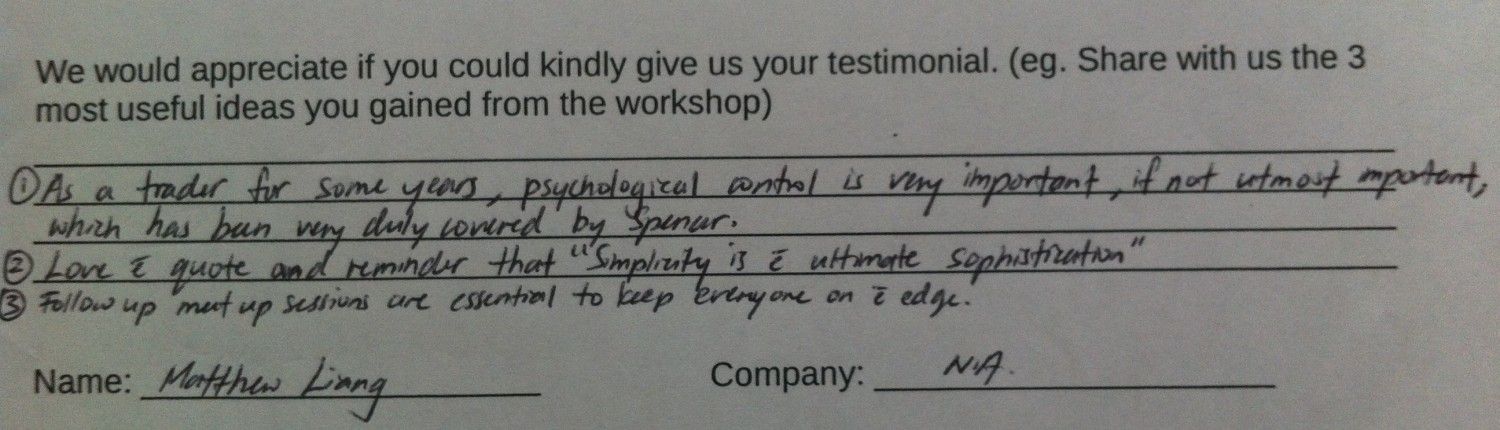 We would appreciate if you could kindly give us your testimonial. (eg. Share with us the 3
most useful ideas you gained from the workshop)
① As a trader for some years, psychological control is very important, if not utmost mportant,
which has been very duly covered by Spencer.
② Love ē quote and reminder that "Simplicity is ē ultimate sophistication"
③ Follow up meet up sessions are essential to keep everyone on ē edge.
Name: Matthew Liang Company: N.A.